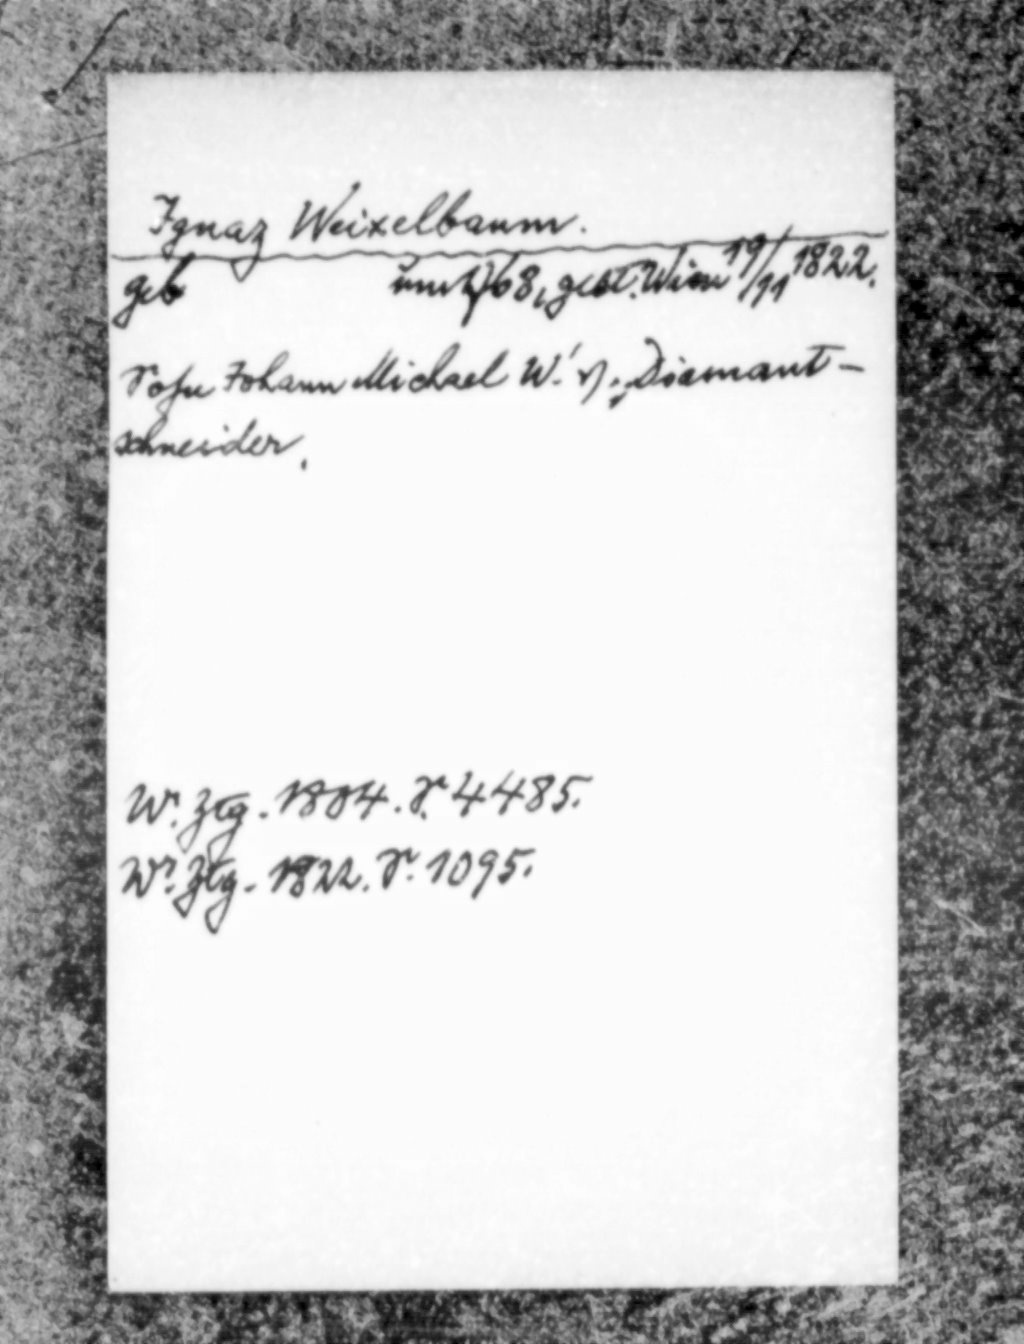 Ignaz Weixelbaum.
geb um 1768, gest. Wien 19/11 1822.
Sohn Johann Michael W.'s, Diamant-
schneider.
W. Ztg. 1804. S. 4485.
W. Ztg. 1822. S. 1095.